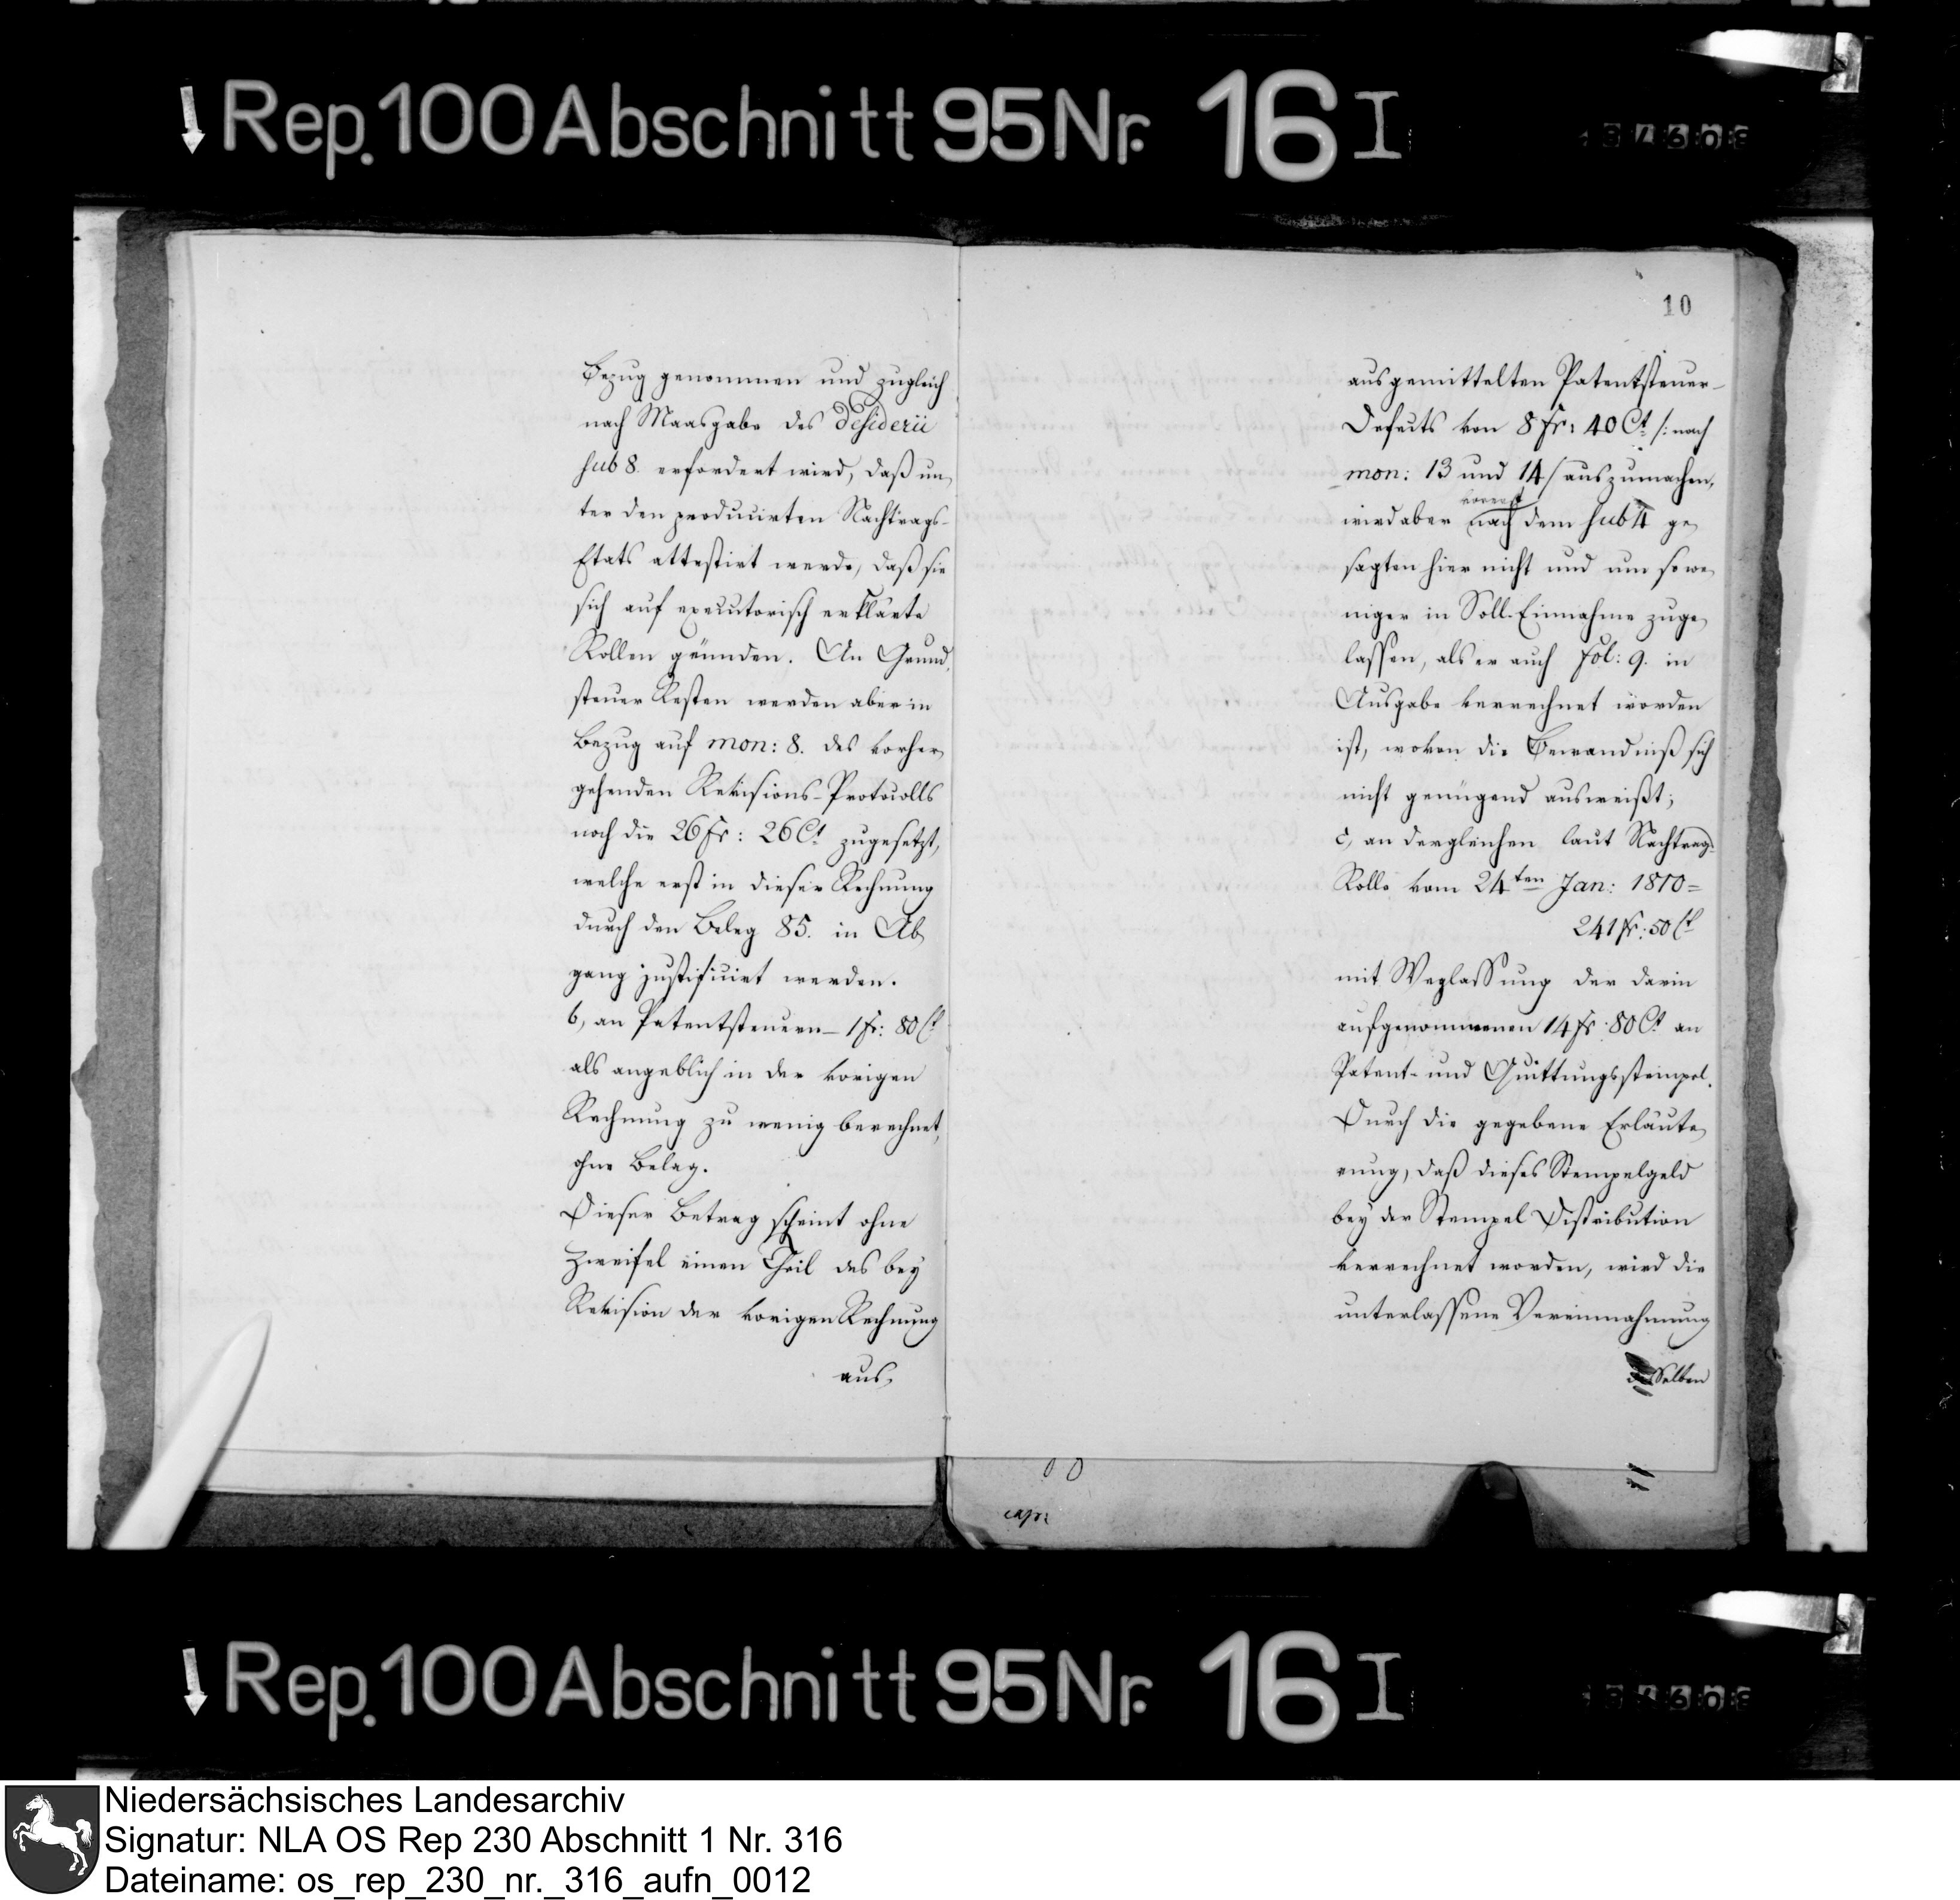 Rep. 100 Abschnitt 95 Nr. 16 I
Bezug genommen und zugleich
nach Maasgabe des Desiderii
sub 8. erfordert wird, daß un,
ter den producirten Nachtrags-
Etats attestirt werde, daß sie
sich auf executorisch erklärte
Rollen gründen. An Grund,
steuer Resten werden aber in
Bezug auf mon: 8. des vorher,
gehenden Revisions-Protocolls
noch die 26 Fr: 26 Ct. zugesetzt,
welche erst in dieser Rechnung
durch den Beleg 85. in Ab,
gang justificirt werden.
b, an Patentsteuern – 1 Fr: 80 Ct
als angeblich in der vorigen
Rechnung zu wenig berechnet,
ohne Belag.
Dieser Betrag scheint ohne
Zweifel einen Theil des bey
Revision der vorigen Rechnung
aus,
10
ausgemittelten Patentsteuer-
Defects von 8 Fr: 40 Ct. /: nach
mon: 13 und 14 / auszumachen,
vorerst
wird aber nach dem sub 4 ge,
sagten hier nicht und um so we,
niger in Soll-Einnahme zuge,
lassen, als er auch Fol: 9. in
Ausgabe verrechnet worden
ist, wovon die Bewandniß sich
nicht genügend ausweißt;
c, an dergleichen laut Nachtrag-
Rolle vom 24ten Jan: 1810 =
241 Fr: 50 Ct
mit Weglassung der darin
aufgenommenen 14 Fr: 80 Ct. an
Patent- und Quittungsstempel.
Durch die gegebene Erläute,
rung, daß dieses Stempelgeld
bey der Stempel Distribution
verrechnet worden, wird die
unterlassene Vereinnahmung
desselben
Rep. 100 Abschnitt 95 Nr. 16 I
Niedersächsisches Landesarchiv
Signatur: NLA OS Rep 230 Abschnitt 1 Nr. 316
Dateiname: os_rep_230_nr._316_aufn_0012